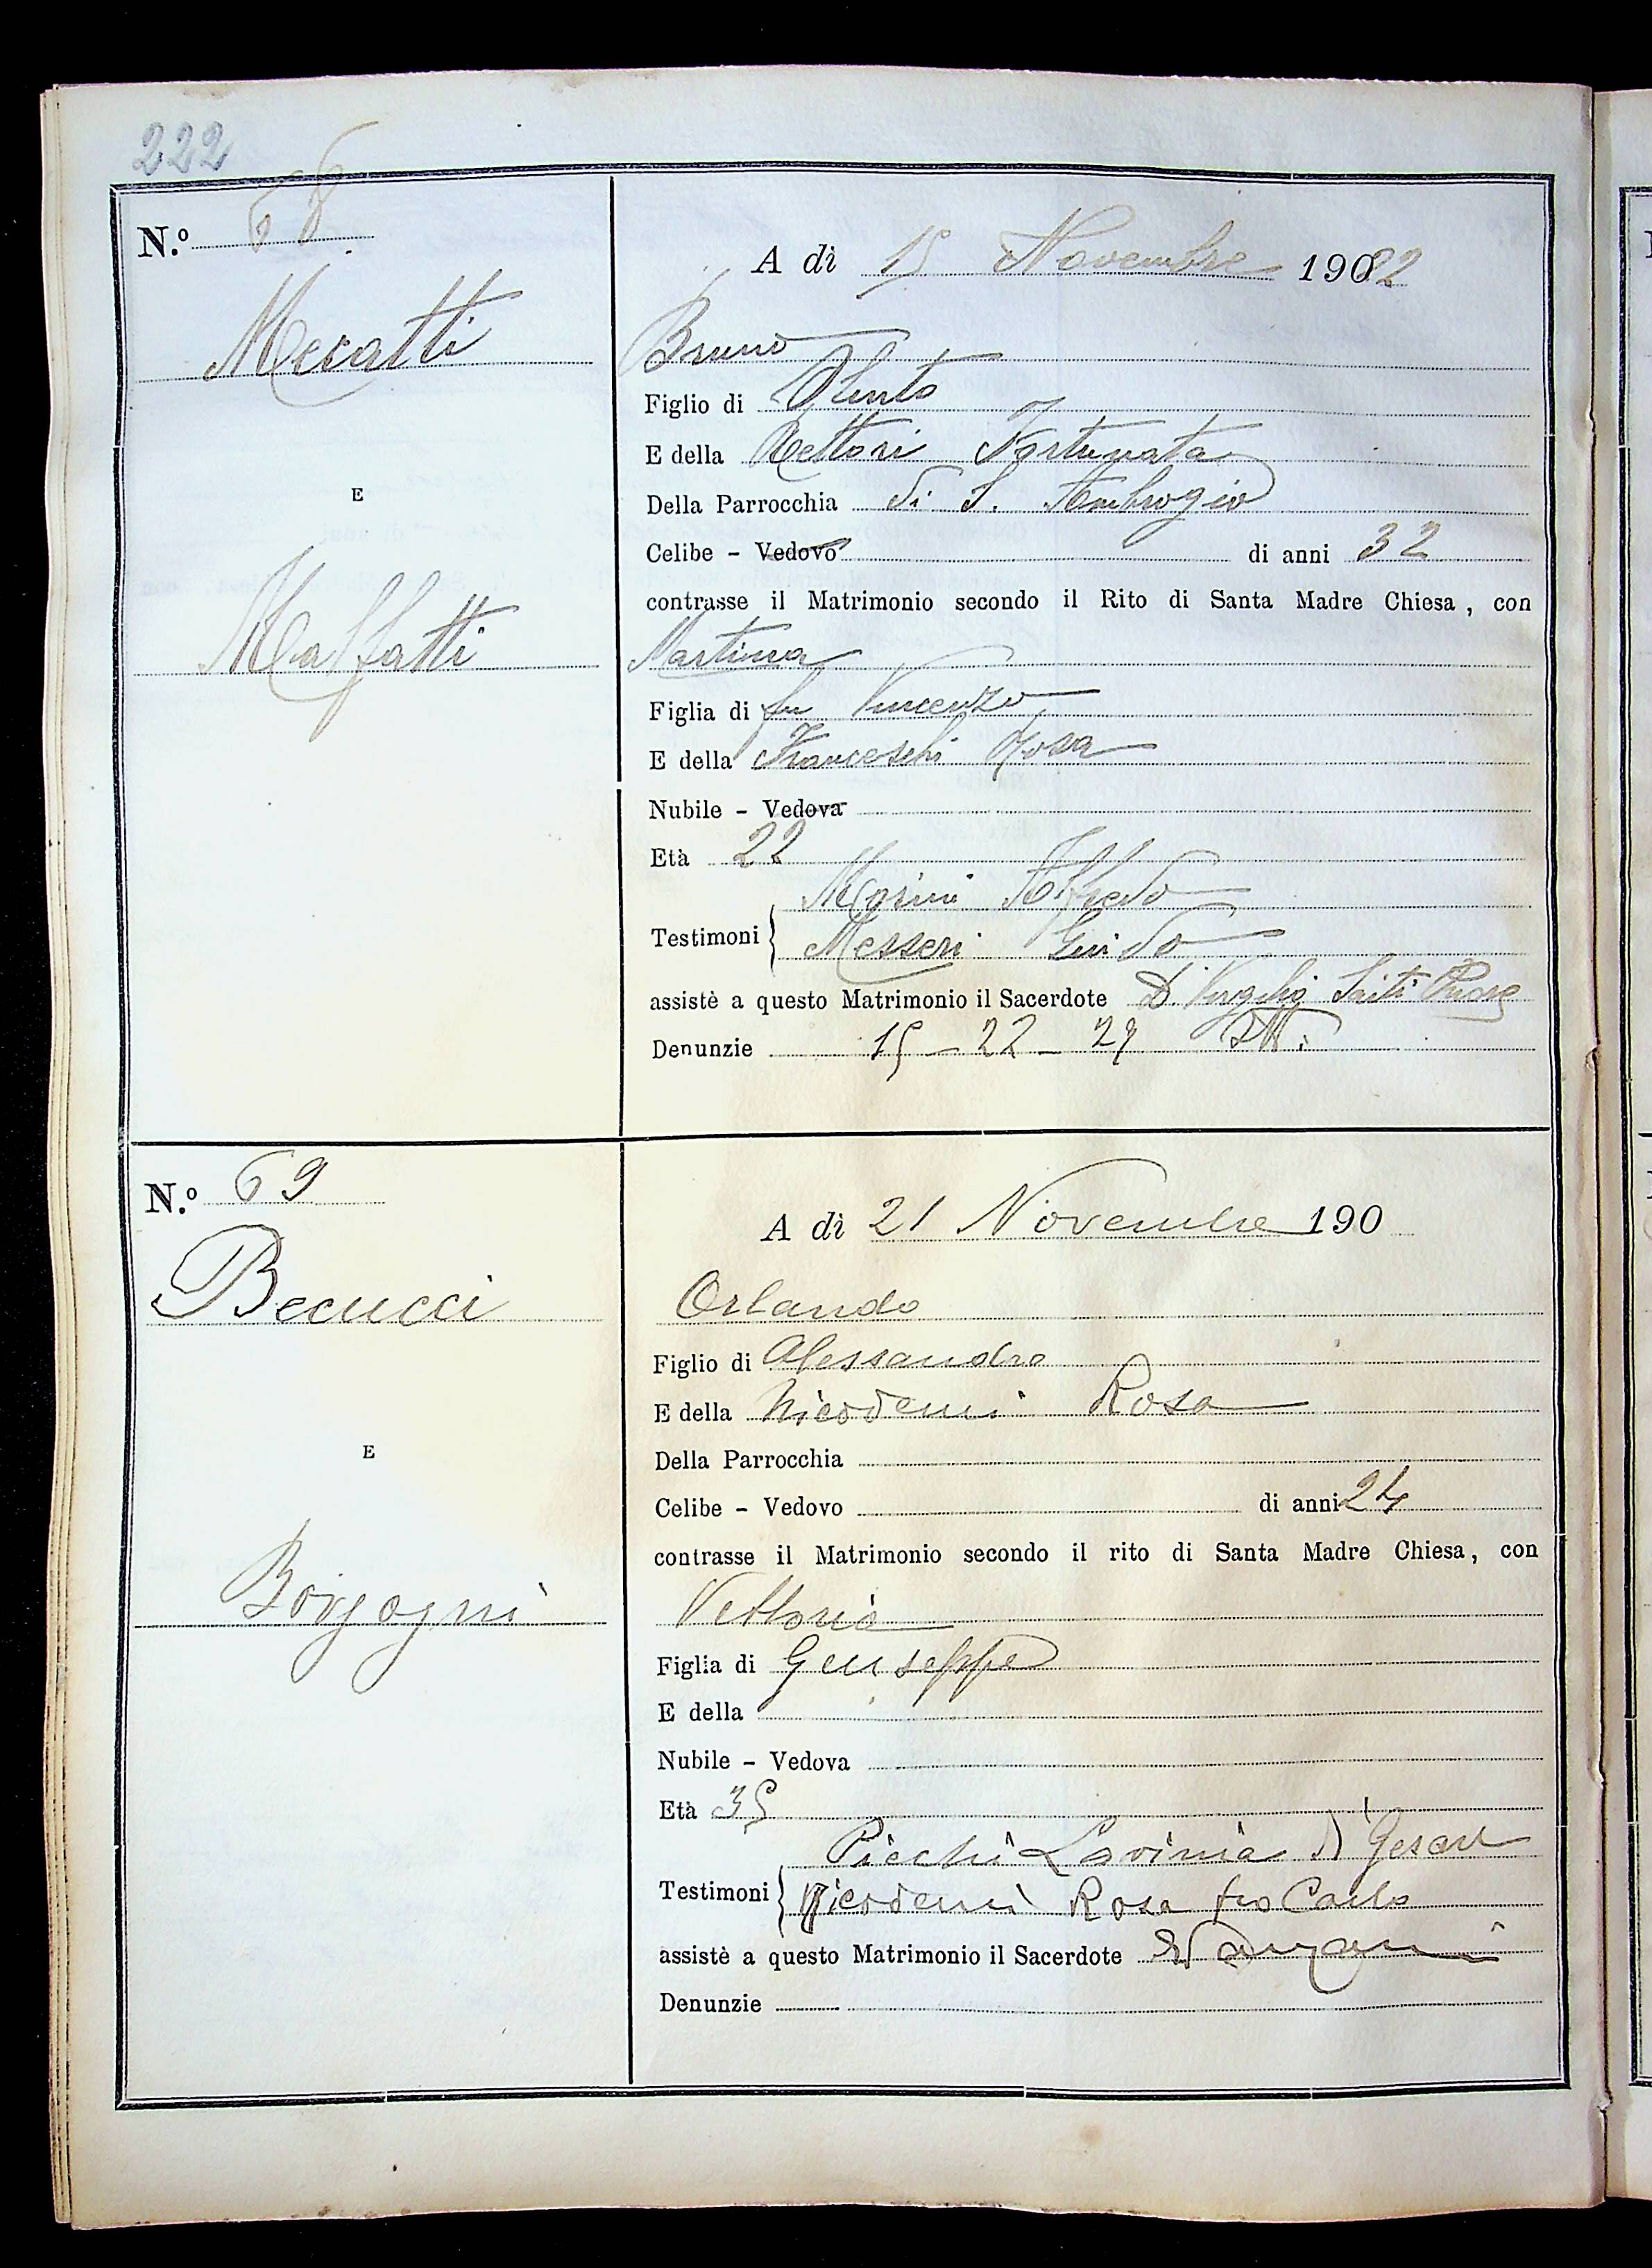 222
N.º 68.
A dì 15 Novembre 1922
Mecatti
Bruno
Figlio di Olinto
E della Rettori Fortunata
E
Della Parrocchia di S. Ambrogio
Celibe - Vedovo di anni 32
contrasse il Matrimonio secondo il Rito di Santa Madre Chiesa, con
Malfatti
Martina
Figlia di fu Vincenzo
E della Franceschi Rosa
Nubile - Vedova
Età 22
Marini Alfredo
Testimoni Messeri Guido
assistè a questo Matrimonio il Sacerdote D. Virgilio
Denunzie 15 - 22 - 29
N.º 69
A dì 21 Novembre 190
Becucci
Orlando
Figlio di Alessandro
E della Nicodemi Rosa
E
Della Parrocchia
Celibe - Vedovo di anni 24
contrasse il Matrimonio secondo il rito di Santa Madre Chiesa, con
Borgogni
Vettoria
Figlia di Giuseppe
E della
Nubile - Vedova
Età 35
Picchi Lavinia di Cesare
Testimoni Nicodemi Rosa fu Carlo
assistè a questo Matrimonio il Sacerdote
Denunzie